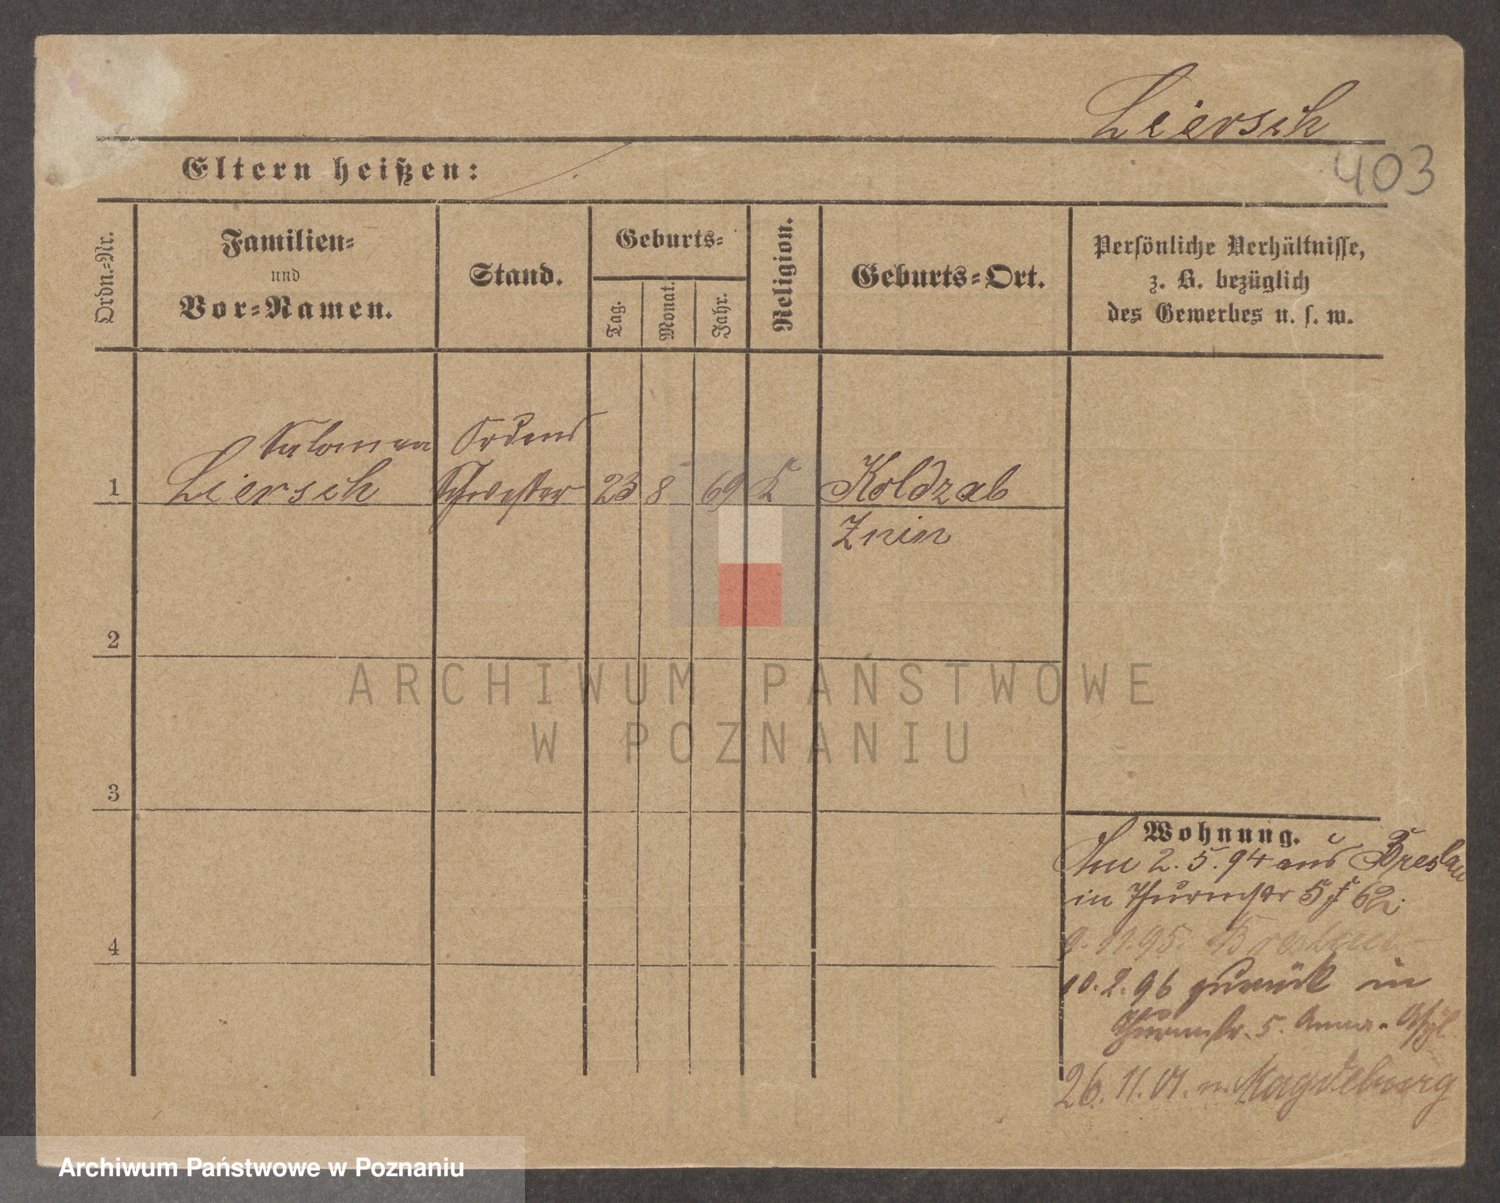 Liersch
403
Eltern heißen:
Ordn.-Nr.
Familien-
und
Vor-Namen.
Stand.
Geburts-
Tag.
Monat.
Jahr.
Religion.
Geburts-Ort.
Persönliche Verhältnisse,
z. B. bezüglich
des Gewerbes u. s. w.
Salomea
Ordens
1 Liersch Schwester 23 8 69 K Koldzab
Znin
2
3
4
Wohnung.
2.5.94 aus Breslau
in Thurmstr 5
9.11.95. Breslau
10.2.96 zurück in
Thurmstr. 5.
26.11.01. n. Magdeburg
ARCHIWUM PAŃSTWOWE
W POZNANIU
Archiwum Państwowe w Poznaniu